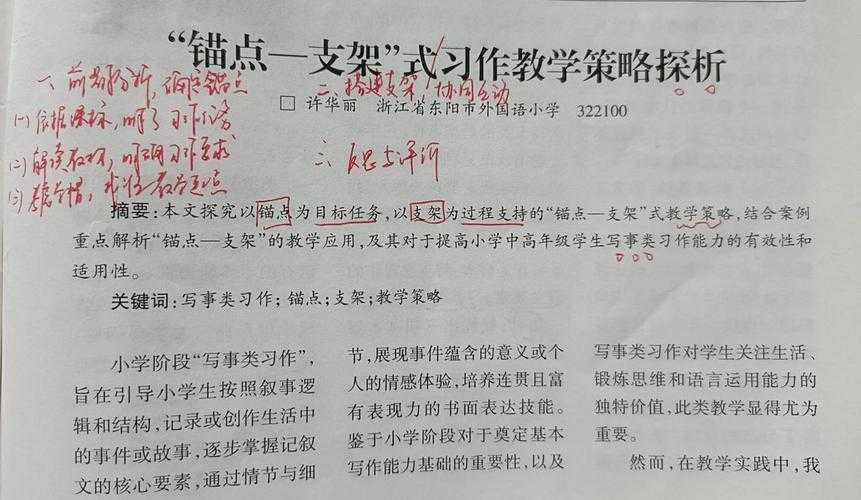 “锚点—支架”式习作教学策略探析
一、前期分析，确定锚点
二、搭建支架，协同互动
□ 许华丽 浙江省东阳市外国语小学 322100
(一)依据课标，明了习作任务
(二)解读教材，明确习作要求
三、反思与评价
(三)考虑学情，
摘要:本文探究以锚点为目标任务,以支架为过程支持的“锚点—支架”式教学策略,结合案例
重点解析“锚点—支架”的教学应用,及其对于提高小学中高年级学生写事类习作能力的有效性和
适用性。
关键词:写事类习作;锚点;支架;教学策略
小学阶段“写事类习作”,
旨在引导小学生按照叙事逻
辑和结构,记录或创作生活中
的事件或故事,逐步掌握记叙
文的核心要素,通过情节与细
节,展现事件蕴含的意义或个
人的情感体验,培养连贯且富
有表现力的书面表达技能。
鉴于小学阶段对于奠定基本
写作能力基础的重要性,以及
写事类习作对学生关注生活、
锻炼思维和语言运用能力的
独特价值,此类教学显得尤为
重要。
然而,在教学实践中,我